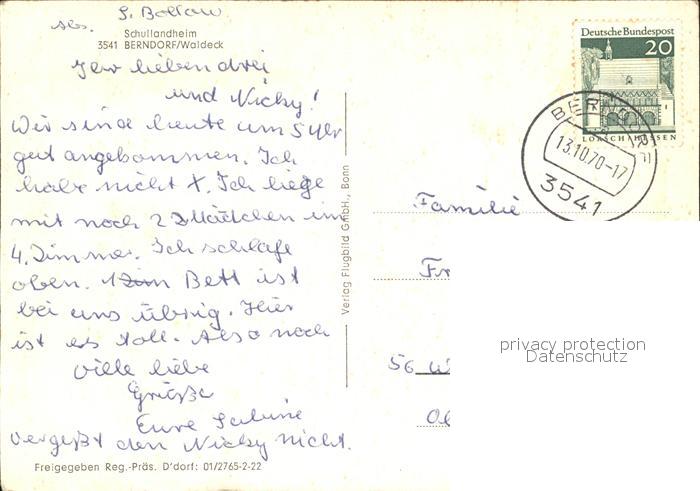 Abs. S. Bollow
Schullandheim
3541 BERNDORF/Waldeck
Ihr lieben drei
und Nicky!
Wir sind heute um 5 Uhr
gut angekommen. Ich
habe nicht +. Ich liege
mit noch 2 Mädchen im
4. Zimmer. Ich schlafe
oben. 1 Bett ist
bei uns übrig. Hier
ist es toll. Also noch
viele liebe
Grüße
Eure Sabine
vergeßt den Nicky nicht.
Freigegeben Reg.-Präs. D'dorf: 01/2765-2-22
Verlag Flugbild GmbH., Bonn
Deutsche Bundespost
20
LORSCH/HESSEN
BERNDORF
13.10.70-17
3541
Familie
Fr
56 W
Ob
privacy protection
Datenschutz